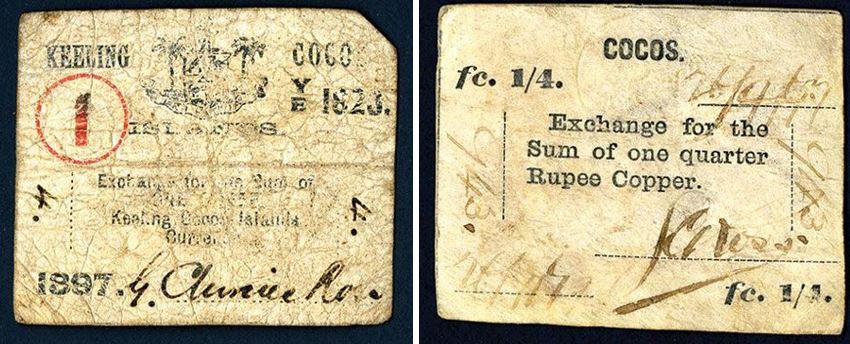 KEELING COCOS
1
Y
E 1823.
ISLANDS.
Exchange for the Sum of
Keeling Cocos Islands
Currency
1897. G. Clunies Ross
COCOS.
fc. 1/4.
Exchange for the
Sum of one quarter
Rupee Copper.
G/43.
G/43
fc. 1/4.